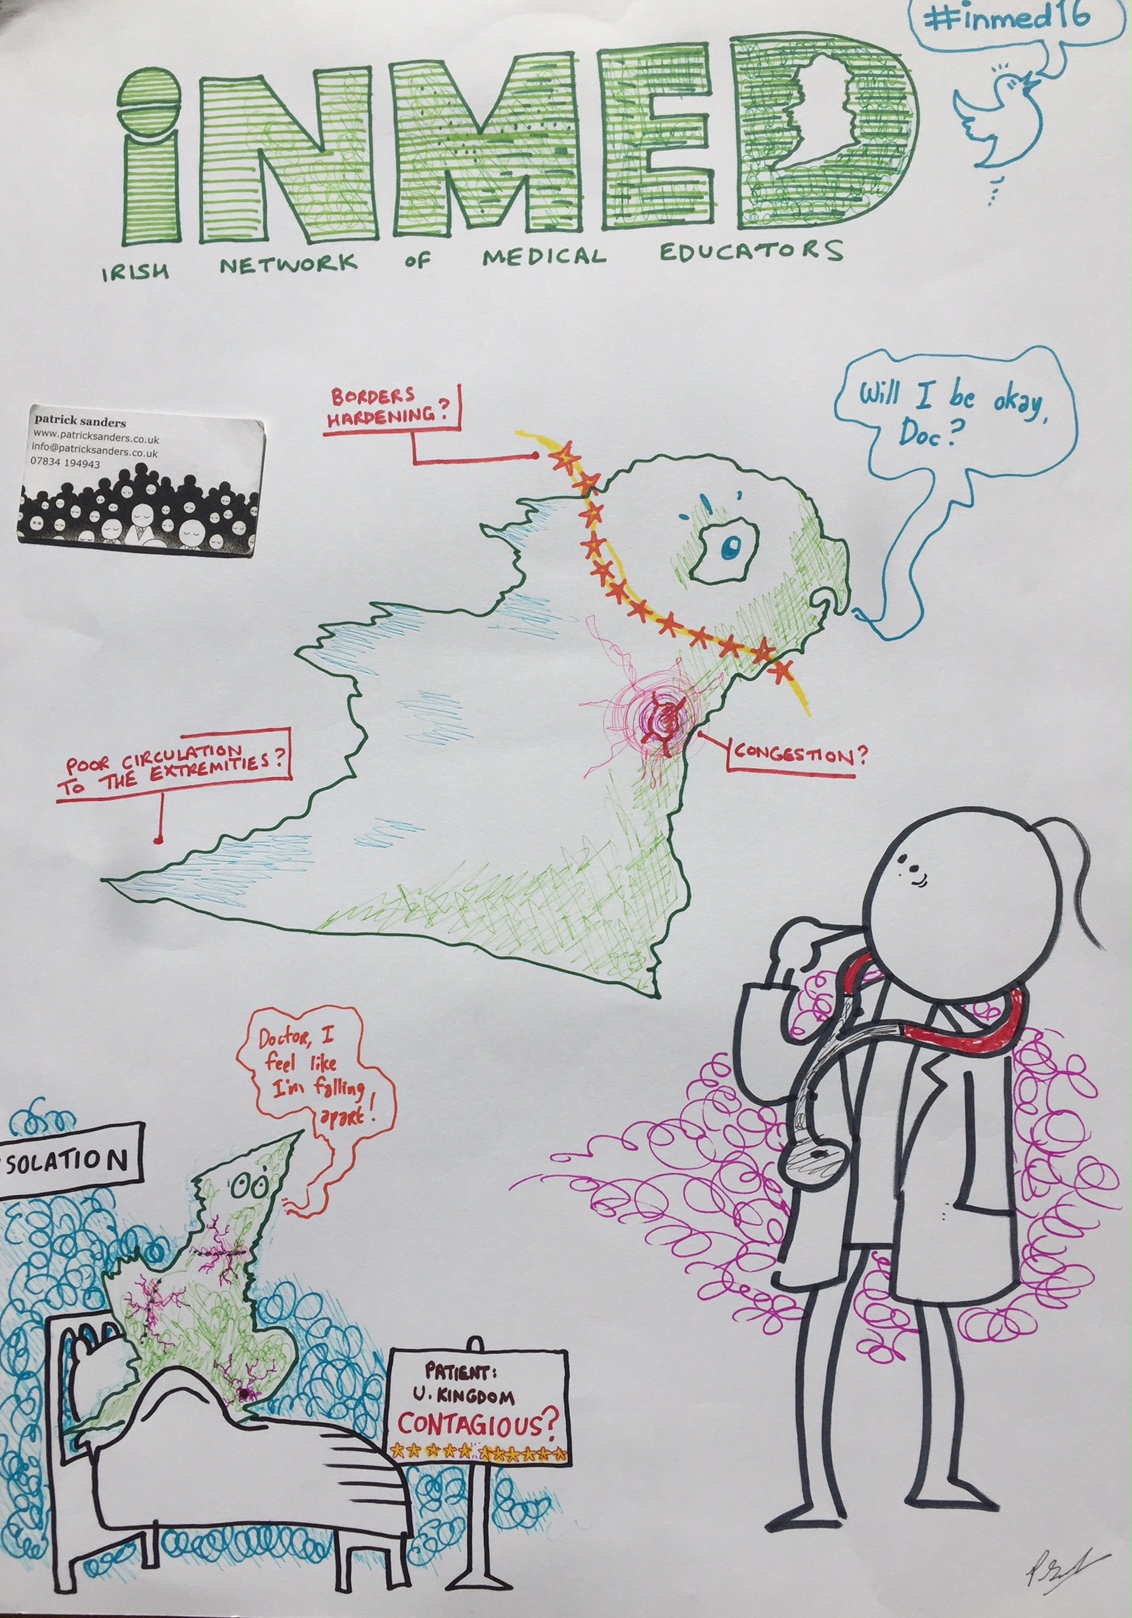 #inmed16
iNMED
IRISH NETWORK OF MEDICAL EDUCATORS
BORDERS
HARDENING?
Will I be okay,
Doc?
patrick sanders
www.patricksanders.co.uk
info@patricksanders.co.uk
07834 194943
POOR CIRCULATION
TO THE EXTREMITIES?
CONGESTION?
Doctor, I
feel like
I'm falling
apart!
SOLATION
PATIENT:
U. KINGDOM
CONTAGIOUS?